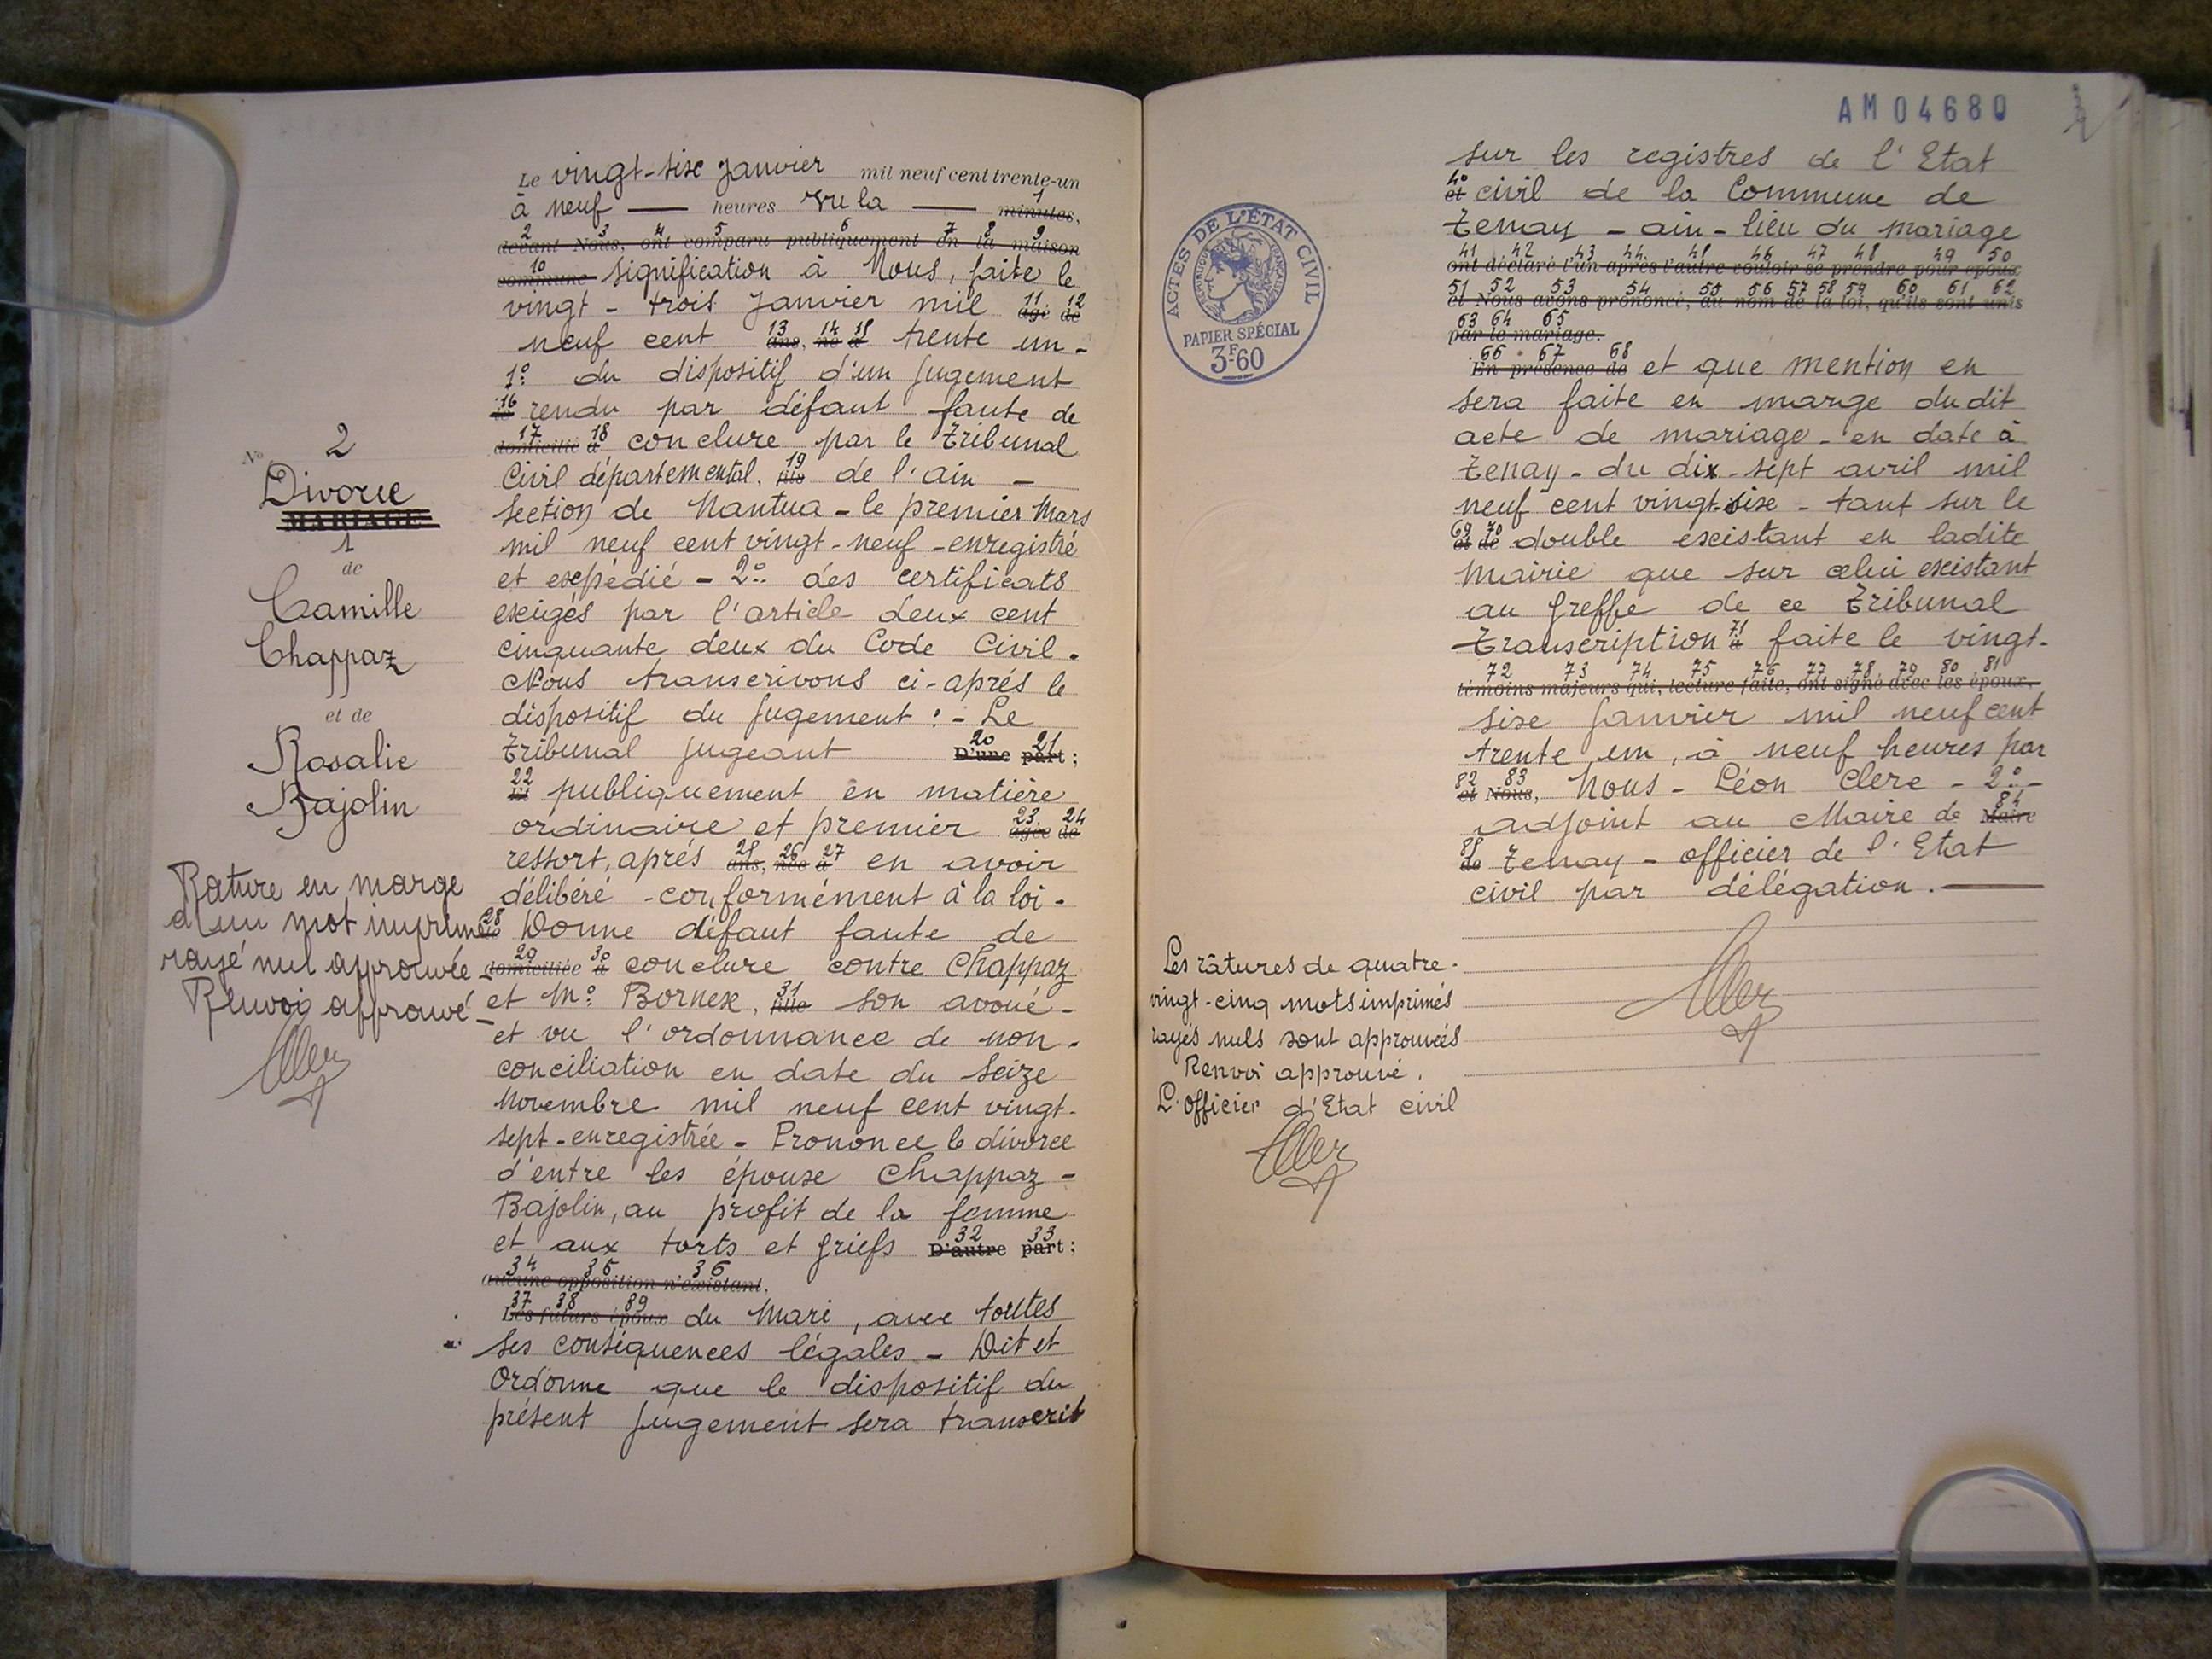 N° 2
Divorce
MARIAGE
1
de
Camille
Chappaz
et de
Rosalie
Bajolin
Rature en marge
d'un mot imprimé
rayé nul approuvée
Renvoi approuvé
Le vingt-six janvier mil neuf cent trente-un
à neuf — heures vu la — 1 minutes,
2 3 4 5 6 7 8 9
devant Nous, ont comparu publiquement en la maison
10 commune signification à Nous, faite le
vingt-trois janvier mil 11 âgé 12 de
neuf cent 13 ans, 14 né 15 à trente un -
1° du dispositif d'un jugement
16 le rendu par défaut faute de
17 domicilié 18 à conclure par le Tribunal
Civil départemental. 19 fils de l'ain -
section de Nantua - le premier Mars
mil neuf cent vingt-neuf - enregistré
et expédié - 2° des certificats
exigés par l'article deux cent
cinquante deux du Code Civil.
Nous transcrivons ci-après le
dispositif du jugement : - Le
Tribunal jugeant 20 D'une 21 part ;
22 et publiquement en matière
ordinaire et premier 23 âgée 24 de
ressort, après 25 ans, 26 née 27 à en avoir
délibéré - conformément à la loi -
28 le Donne défaut faute de
29 domiciliée 30 à conclure contre Chappaz
et M° Bornex, 31 fille son avoué -
et vu l'ordonnance de non-
conciliation en date du seize
Novembre mil neuf cent vingt-
sept - enregistrée - Prononce le divorce
d'entre les épouse Chappaz -
Bajolin, au profit de la femme
et aux torts et griefs 32 D'autre 33 part ;
34 35 36
aucune opposition n'existant.
37 38 39
Les futurs époux du Mari, avec toutes
ses conséquences légales - Dit et
Ordonne que le dispositif du
présent jugement sera transcrit
AM04680
ACTES DE L'ÉTAT CIVIL
RÉPUBLIQUE FRANÇAISE
PAPIER SPÉCIAL
3F60
sur les registres de l'Etat
40 et civil de la Commune de
Tenay - ain - lieu du mariage
41 42 43 44 45 46 47 48 49 50
ont déclaré l'un après l'autre vouloir se prendre pour époux
51 52 53 54 55 56 57 58 59 60 61 62
et Nous avons prononcé, au nom de la loi, qu'ils sont unis
63 64 65
par le mariage.
66 67 68
En présence de et que mention en
sera faite en marge dudit
acte de mariage - en date à
Tenay - du dix-sept avril mil
neuf cent vingt-six - tant sur le
69 et 70 de double existant en ladite
Mairie que sur celui existant
au Greffe de ce Tribunal
Transcription 71 à faite le vingt-
72 73 74 75 76 77 78 79 80 81
témoins majeurs qui, lecture faite, ont signé avec les époux.
six janvier mil neuf cent
trente, un, à neuf heures par
82 et 83 Nous, Nous - Léon Clerc - 2° -
adjoint au Maire de 84 Maire
85 de Tenay - officier de l'Etat
civil par délégation. —
Les râtures de quatre-
vingt-cinq mots imprimés
rayés nuls sont approuvés
Renvoi approuvé.
L'officier d'Etat civil